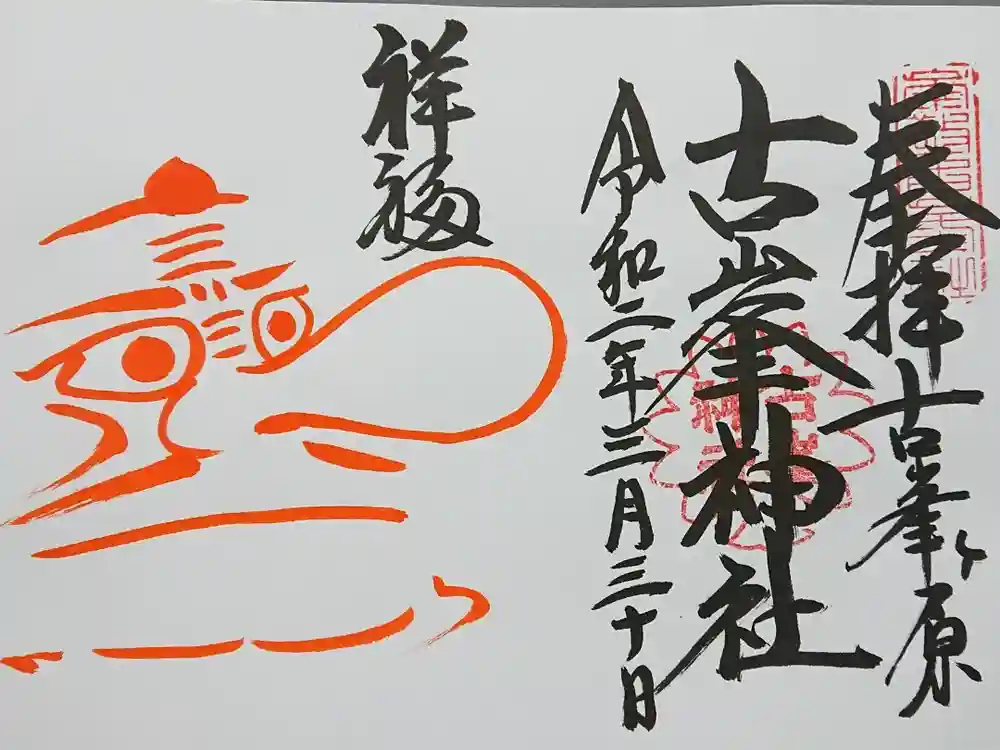 奉拝 古峯ヶ原
古峯神社
令和二年三月三十日
祥福